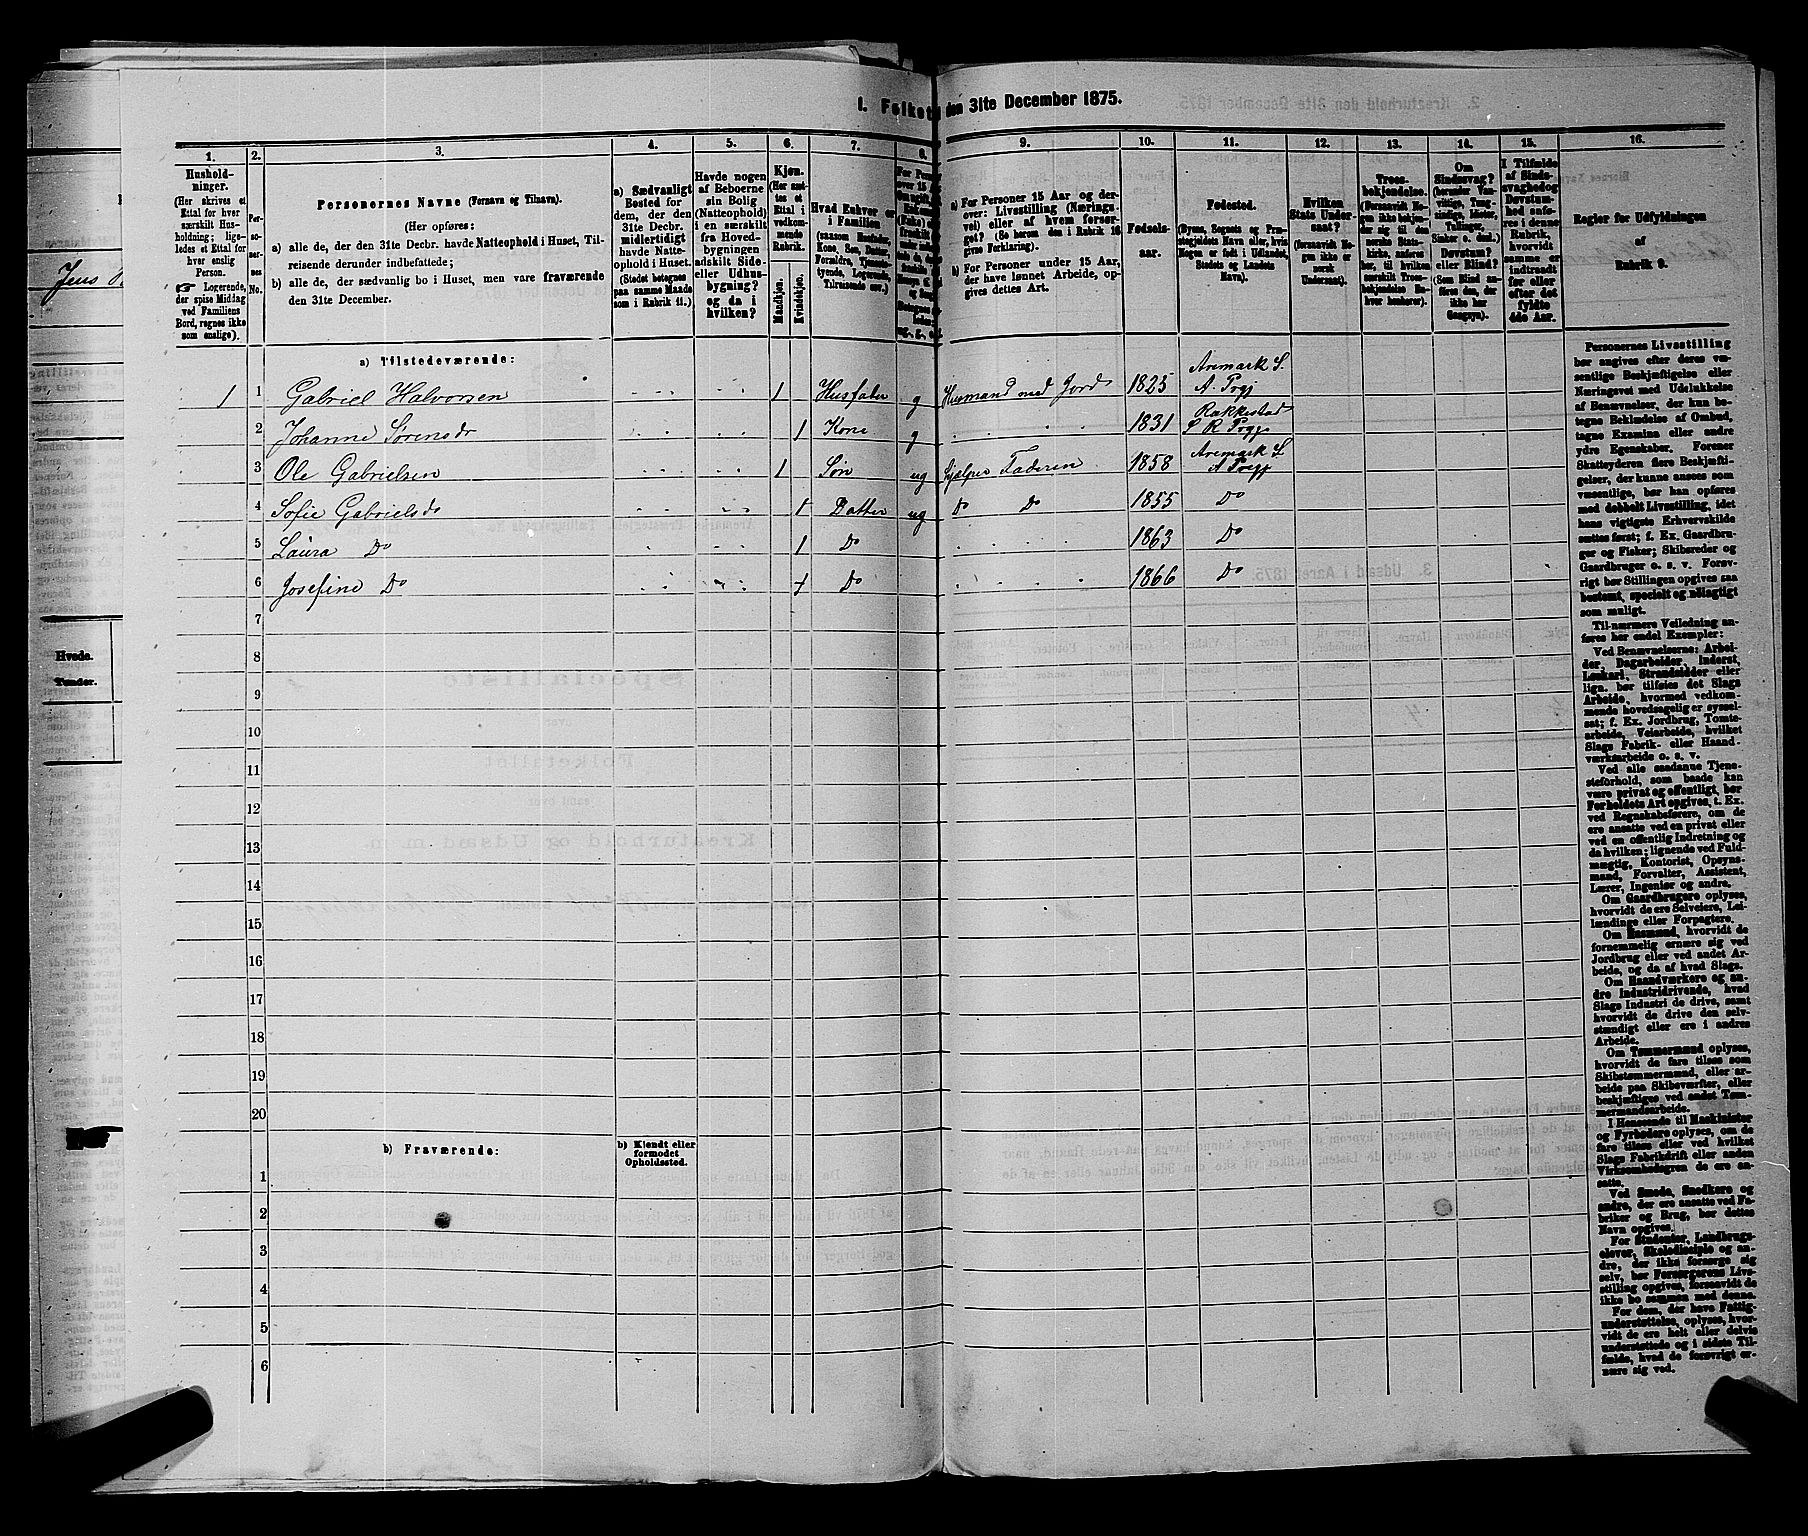 1. Folket
den 31te December 1875.
1.
Hushold-
ninger.
(Her skrives et
Ettal for hver
særskilt Hus-
holdning; lige-
ledes et Ettal for
hver enslig
Person.
☛ Logerende,
der spise Middag
ved Familiens
Bord, regnes ikke
som enslige).
2.
Per-
so-
ner-
nes
No.
3.
Personernes Navne (Fornavn og Tilnavn).
(Her opføres:
a) alle de, der den 31te Decbr. havde Natteophold i Huset, Til-
reisende derunder indbefattede;
b) alle de, der sædvanlig bo i Huset, men vare fraværende
den 31te December.
4.
a) Sædvanligt
Bosted for
dem, der den
31te Decbr.
midlertidigt
havde Natte-
ophold i Huset.
(Stedet betegnes
paa samme Maade
som i Rubrik 11.)
5.
Havde nogen
af Beboerne
sin Bolig
(Natteophold)
i en særskilt
fra Hoved-
bygningen
adskilt Side-
eller Udhus-
bygning?
og da i
hvilken?
6.
Kjøn.
(Her sæt-
tes et
Ettal i
vedkom-
mende
Rubrik.
Mandkjøn.
Kvindekjøn.
7.
Hvad Enhver er
i Familien
(saasom Husfader,
Kone, Søn, Datter,
Forældre, Tjeneste-
tyende, Logerende,
Tilreisende osv.)
8.
9.
a) For Personer 15 Aar og der-
over: Livsstilling (Nærings-
vei) eller af hvem forsør-
get? (Se herom den i Rubrik 16
givne Forklaring).
b) For Personer under 15 Aar,
der have lønnet Arbeide, op-
gives dettes Art.
10.
Fødsels-
aar.
11.
Fødested.
(Byens, Sognets og Præ-
stegjeldets Navn eller, hvis
Nogen er født i Udlandet,
Stedets og Landets
Navn).
12.
Hvilken
Stats Under-
saat?
(forsaavidt No-
gen ikke er
norsk
Undersaat).
13.
Troes-
bekjendelse.
(Forsaavidt No-
gen ikke be-
kjender sig til
den norske
Stats-
kirke, anføres
her, til hvilken
særskilt Troes-
bekjendelse En-
hver henhører).
14.
Om
Sindssvag?
(herunder Van-
vittige, Tung-
sindige, Idioter,
Sinker o. desl.)
Døvstum?
eller Blind?
(Som Blind an-
føres den, der
ikke har
Gangsyn).
15.
I Tilfælde
af Sinds-
svaghed og
Døvstum-
hed anfø-
res i denne
Rubrik,
hvorvidt
samme er
indtraadt
før eller
efter det
fyldte
4de Aar.
16.
Regler for Udfyldningen
af
Rubrik 9.
a) Tilstedeværende:
1 1 Gabriel Halvorsen 1 Husfader g Husmand med Jord 1825 Aremark S. A. Prgj
2 Johanne Sørensdr 1 Kone g 1831 Rakkestad S R Prgj
3 Ole Gabrielsen 1 Søn ug hjælper Faderen 1858 Aremark S A Prgj
4 Sofie Gabrielsdr 1 Datter ug Do Do 1855 Do
5 Laura Do 1 Do 1863 Do
6 Josefine Do 1 Do 1866 Do
7
8
9
10
11
12
13
14
15
16
17
18
19
20
b) Fraværende:
b) Kjendt eller
formodet
Opholdssted.
1
2
3
4
5
6
Personernes Livsstilling
bør angives efter deres væ-
sentlige Beskjæftigelse eller
Næringsvei med Udelukkelse
af Benævnelser, der kun be-
tegne Beklædelse af Ombud,
tagne Examina eller andre
ydre Egenskaber. Forener
Skatteyderen flere Beskjæfti-
gelser, der kunne ansees som
væsentlige, bør han opføres
med dobbelt Livsstilling, idet
hans vigtigste Erhvervskilde
sættes først; f. Ex. Gaardbru-
ger og Fisker; Skibsreder og
Gaardbruger o. s. v. Forøv-
rigt bør Stillingen opgives saa
bestemt, specielt og nøiagtigt
som muligt.
Til nærmere Veiledning an-
føres her endel Exempler:
Ved Benævnelserne: Arbei-
der, Dagarbeider, Inderst,
Løskarl, Strandsidder eller
lign. bør tilføies det Slags
Arbeide, hvormed vedkom-
mende hovedsagelig er syssel-
sat; f. Ex. Jordbrug, Tomte-
arbeide, Veiarbeide, hvilket
Slags Fabrik- eller Haand-
værksarbeide o. s. v.
Ved alle saadanne Tjene-
steforhold, som baade kan
være privat og offentligt, bør
Forholdets Art opgives, t. Ex.
ved Regnskabsførere, om de
ere ansatte ved en privat eller
ved en offentlig Indretning og
da hvilken; lignende ved Fuld-
mægtig, Kontorist, Opsyns-
mand, Forvalter, Assistent,
Lærer, Ingeniør og andre.
Om Gaardbrugere oplyses,
hvorvidt de ere Selveiere, Lei-
lændinge eller Forpagtere.
Om Husmænd, hvorvidt de
fornemmelig ernære sig ved
Jordbrug eller ved andet Ar-
beide, og da af hvad Slags.
Om Haandværkere og an-
dre Industridrivende, hvad
Slags Industri de drive, samt
hvorvidt de drive den selv-
stændigt eller ere i andres
Arbeide.
Om Tømmermænd oplyses,
hvorvidt de fare tilsøs som
Skibstømmermænd, eller ar-
beide paa Skibsværfter, eller
beskjæftiges ved andet Tøm-
mermandsarbeide.
I Henseende til Maskinister
og Fyrbødere oplyses, om de
fare tilsøs eller ved hvilket
Slags Fabrikdrift eller anden
Virksomhedsgren de ere an-
satte.
Ved Smede, Snedkere og
andre, der ere ansatte ved Fa-
briker og Brug, bør dettes
Navn opgives.
For Studenter, Landbrugs-
elever, Skoledisciple og an-
dre, der ikke forsørge sig
selv, bør Forsørgerens Livs-
stilling opgives, forsaavidt de
ikke bo sammen med denne.
For dem, der have Fattig-
understøttelse, oplyses, hvor-
vidt de ere helt eller delvis
understøttede og i sidste Til-
fælde, hvad de forøvrigt er-
nære sig ved.
Jens
Hvede.
Tønder.